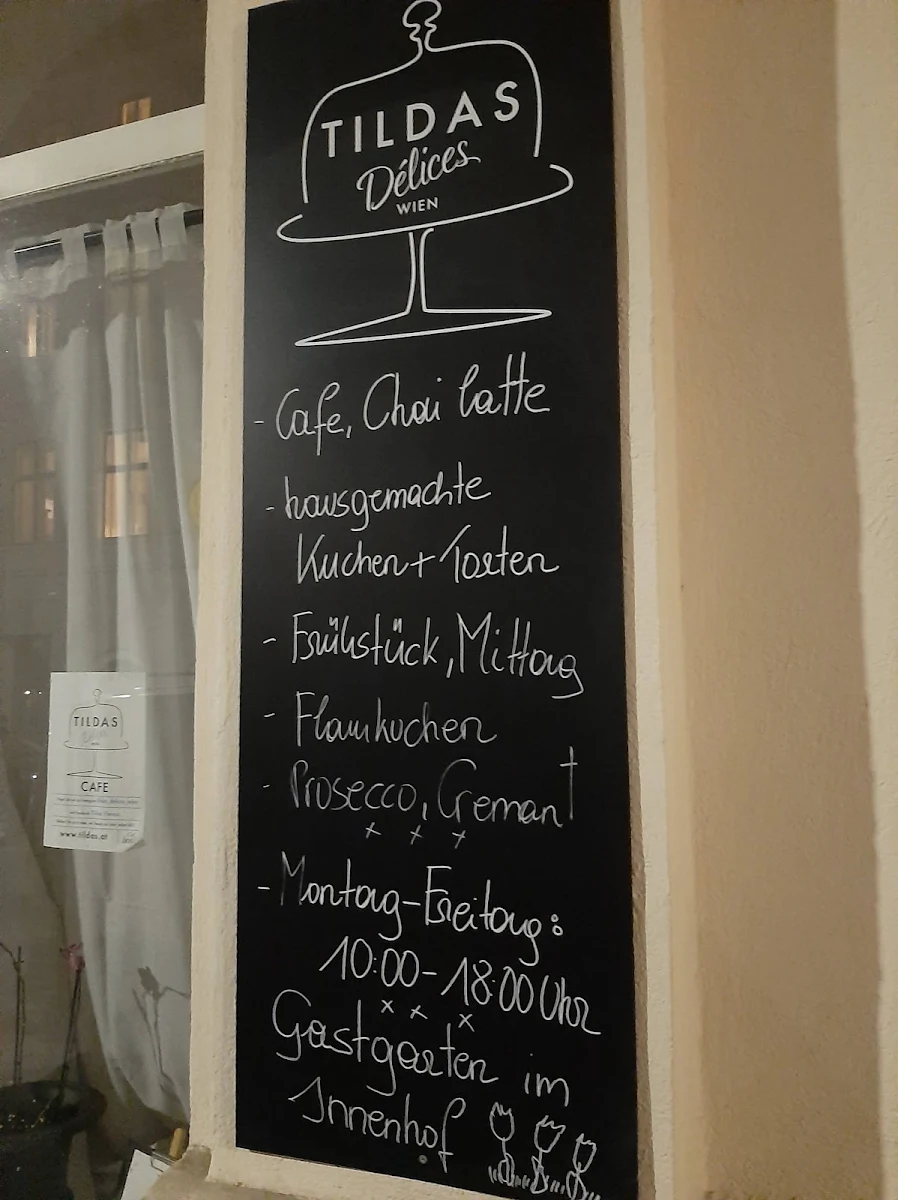 TILDAS
Délices
WIEN
- Cafe, Chai latte
- hausgemachte
Kuchen + Torten
- Frühstück, Mittag
- Flamkuchen
- Prosecco, Cremant
x x x
- Montag - Freitag:
10:00 - 18:00 Uhr
x x x
Gastgarten im
Innenhof
TILDAS
Délices
WIEN
CAFE
www.tildas.at